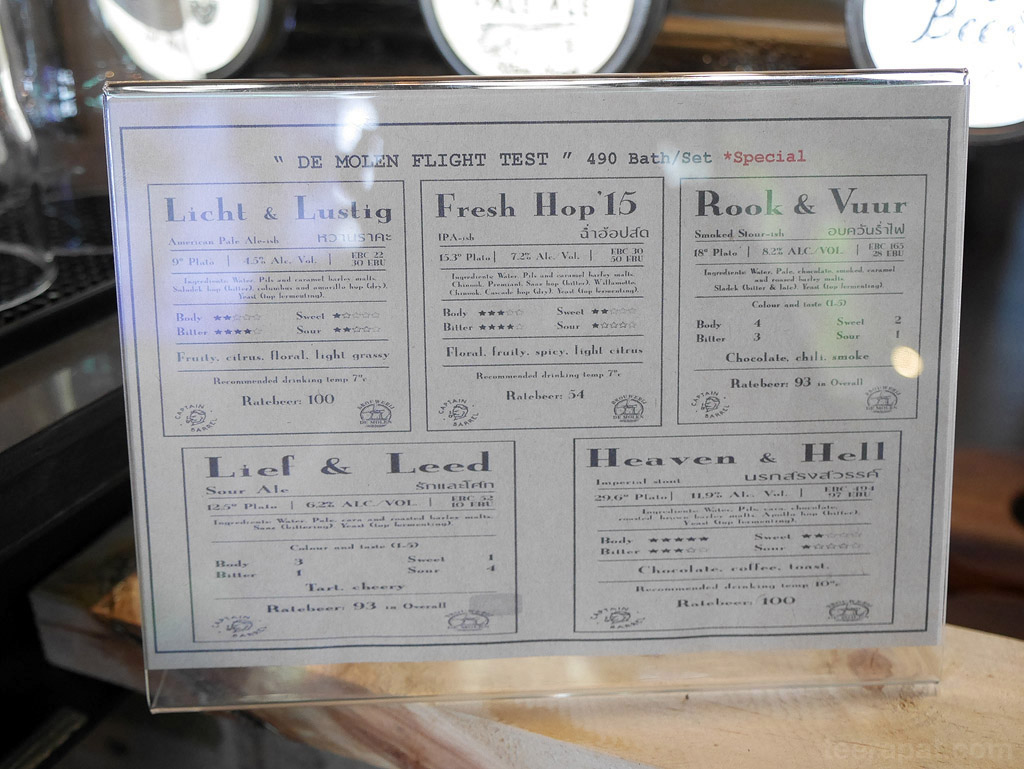 PALE ALE
Beer
" DE MOLEN FLIGHT TEST " 490 Bath/Set *Special
Licht & Lustig
American Pale Ale-ish หวานราคะ
9° Plato | 4.5% Alc. Vol. | EBC 22
30 EBU
Ingredients: Water, Pils and caramel barley malts,
Sladek hop (bitter), columbus and amarillo hop (dry),
Yeast (top fermenting).
Body ★★☆☆☆ Sweet ★☆☆☆☆
Bitter ★★★★☆ Sour ★★☆☆☆
Fruity, citrus, floral, light grassy
Recommended drinking temp 7°c
Ratebeer: 100
CAPTAIN BARREL
BROUWERIJ DE MOLEN
Fresh Hop '15
IPA-ish ฉ่ำฮ็อปสด
15.3° Plato | 7.2% Alc. Vol. | EBC 30
50 EBU
Ingredients: Water, Pils and caramel barley malts,
Chinook, Premiant, Saaz hop (bitter), Willamette,
Chinook, Cascade hop (dry), Yeast (top fermenting).
Body ★★★☆☆ Sweet ★★☆☆☆
Bitter ★★★★☆ Sour ★☆☆☆☆
Floral, fruity, spicy, light citrus
Recommended drinking temp 7°c
Ratebeer: 54
CAPTAIN BARREL
BROUWERIJ DE MOLEN
Rook & Vuur
Smoked Stour-ish อบควันร่ำไฟ
18° Plato | 8.2% ALC/VOL | EBC 165
28 EBU
Ingredients: Water, Pale, chocolate, smoked, caramel
and roasted barley malts,
Sladek (bitter & late), Yeast (top fermenting).
Colour and taste (1-5)
Body 4 Sweet 2
Bitter 3 Sour 1
Chocolate, chili, smoke
Ratebeer: 93 in Overall
CAPTAIN BARREL
BROUWERIJ DE MOLEN
Lief & Leed
Sour Ale รักและโศก
12.5° Plato | 6.2% ALC/VOL | EBC 52
10 EBU
Ingredients: Water, Pale, cara and roasted barley malts,
Saaz (bittering), Yeast (top fermenting).
Colour and taste (1-5)
Body 3 Sweet 1
Bitter 1 Sour 4
Tart, cheery
Ratebeer: 93 in Overall
CAPTAIN BARREL
BROUWERIJ DE MOLEN
Heaven & Hell
Imperial stout นรกสรงสวรรค์
29.6° Plato | 11.9% Alc. Vol. | EBC 494
97 EBU
Ingredients: Water, Pils, cara, chocolate,
roasted, brown barley malts, Apollo hop (bitter),
Yeast (top fermenting).
Body ★★★★★ Sweet ★★☆☆☆
Bitter ★★★☆☆ Sour ★☆☆☆☆
Chocolate, coffee, toast,
Recommended drinking temp 10°c
Ratebeer: 100
CAPTAIN BARREL
BROUWERIJ DE MOLEN
teerapat.com